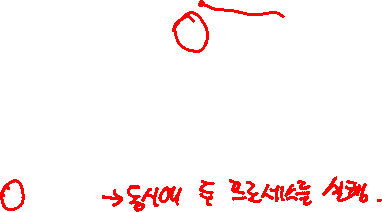 → 동시에 두 프로세스를 실행.